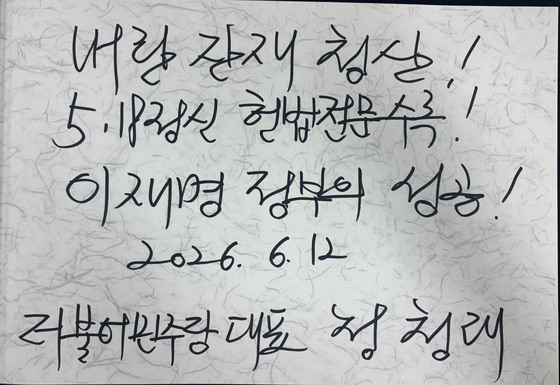 내란 잔재 청산!
5.18정신 헌법전문 수록!
이재명 정부의 성공!
2026. 6. 12
더불어민주당 대표 정 청래